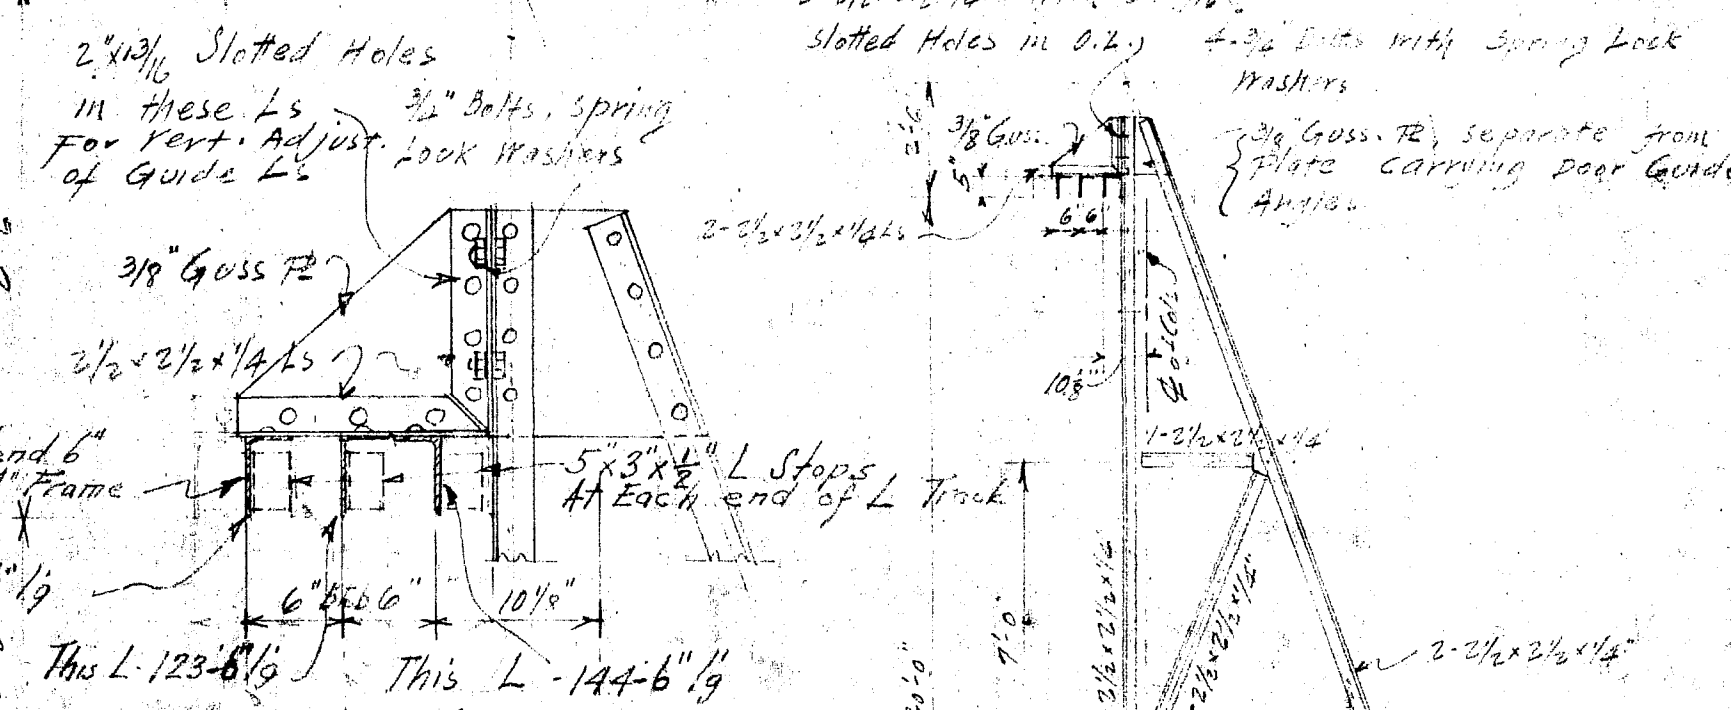 2"x13/16 Slotted Holes
in these Ls
For Vert. Adjust.
of Guide Ls
3/4" Bolts, spring
Lock Washers
3/8" Guss PL
2 1/2 x 2 1/2 x 1/4 Ls
end 6"
Frame
5"x3"x1/2" L Stops
At Each end of L Track
"l'g
6" b to b 6"
10 1/8"
This L-123'-6" l'g
This L-144'-6" l'g
slotted Holes in O.L.,
4-3/4 Bolts with Spring Lock
Washers
3/8 Guss.
3/8" Guss. PL, separate from
Plate Carrying Door Guide
Angles
2'-6"
5"
6" 6"
2-2 1/2 x 2 1/2 x 1/4 Ls
10 1/8"
℄ of Cols
1-2 1/2 x 2 1/2 x 1/4
7'-0"
2 1/2 x 2 1/2 x 1/4
-2 1/2 x 2 1/2 x 1/4"
2-2 1/2 x 2 1/2 x 1/4"